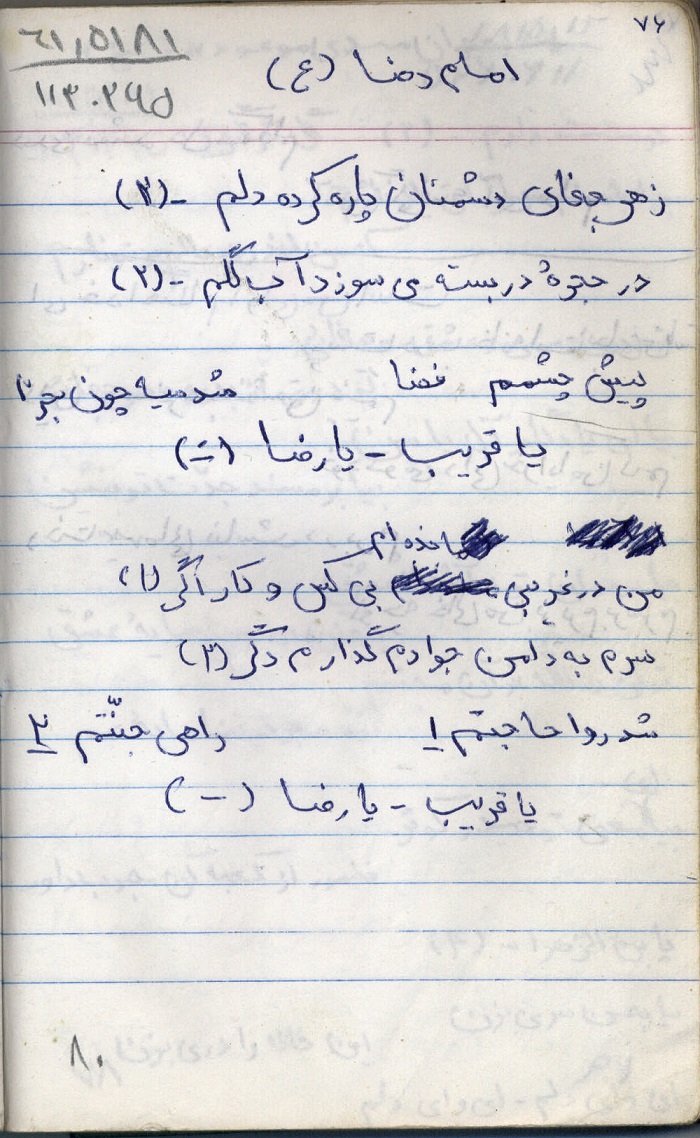 ۷۶
۱۱۳۰۲۶۵
امام رضا (ع)
زهر جفای دشمنان چاره کرده دلم - (۲)
در حجرهٔ در بسته می سوزد آب گلم - (۲)
پیش چشمم فضا شد سیه چون
یا قریب - یا رضا (-)
مانده ام
من در غریبی بی کس و کار اگر (۱)
سرم به دامن جوادم گذارم دگر (۲)
شد روا حاجتم ۱ راهی جنّتم ۲
یا قریب - یا رضا (-)
۸۰